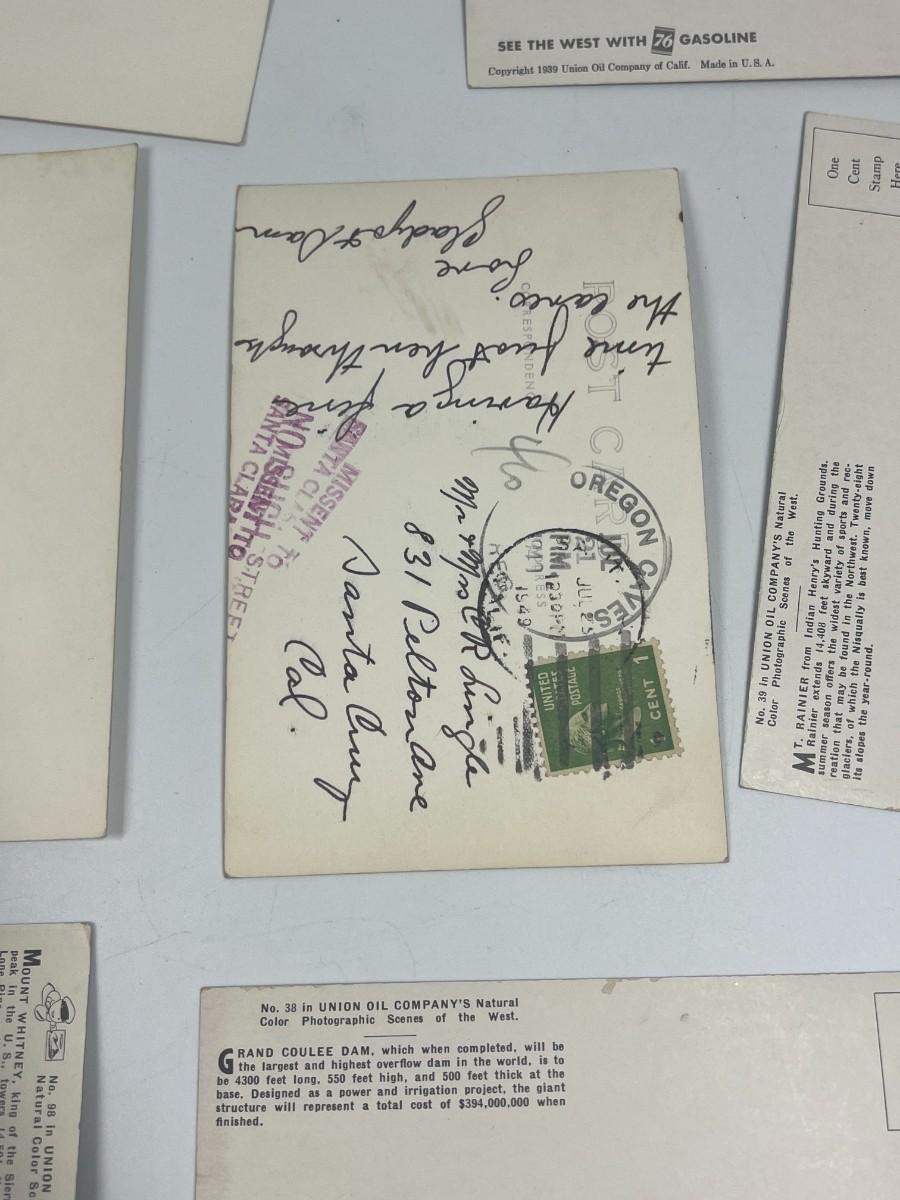 SEE THE WEST WITH 76 GASOLINE
Copyright 1939 Union Oil Company of Calif. Made in U. S. A.
One
Cent
Stamp
Here
No. 39 in UNION OIL COMPANY'S Natural
Color Photographic Scenes of the West.
MT. RAINIER from Indian Henry's Hunting Grounds.
Rainier extends 14,408 feet skyward and during the
summer season offers the widest variety of sports and rec-
reation that may be found in the Northwest. Twenty-eight
glaciers, of which the Nisqually is best known, move down
its slopes the year-round.
POST CARD
CORRESPONDENCE
Having a fine
time just been through
the caves.
Love
Gladys & Sam
OREGON CAVES
JUL 25
1230PM
1949
UNITED
STATES
POSTAGE
1 CENT 1
Mr & Mrs C R Lingle
831 Pelton Ave
Santa Cruz
Cal.
MISSENT TO
SANTA CLARA
NO SUCH STREET
MISSENT TO
SANTA CLARA
No. 38 in UNION OIL COMPANY'S Natural
Color Photographic Scenes of the West.
GRAND COULEE DAM, which when completed, will be
the largest and highest overflow dam in the world, is to
be 4300 feet long, 550 feet high, and 500 feet thick at the
base. Designed as a power and irrigation project, the giant
structure will represent a total cost of $394,000,000 when
finished.
No. 98 in UNION
Natural Color
MOUNT WHITNEY, king of the
peak in the U. S., towers
Lone Pine